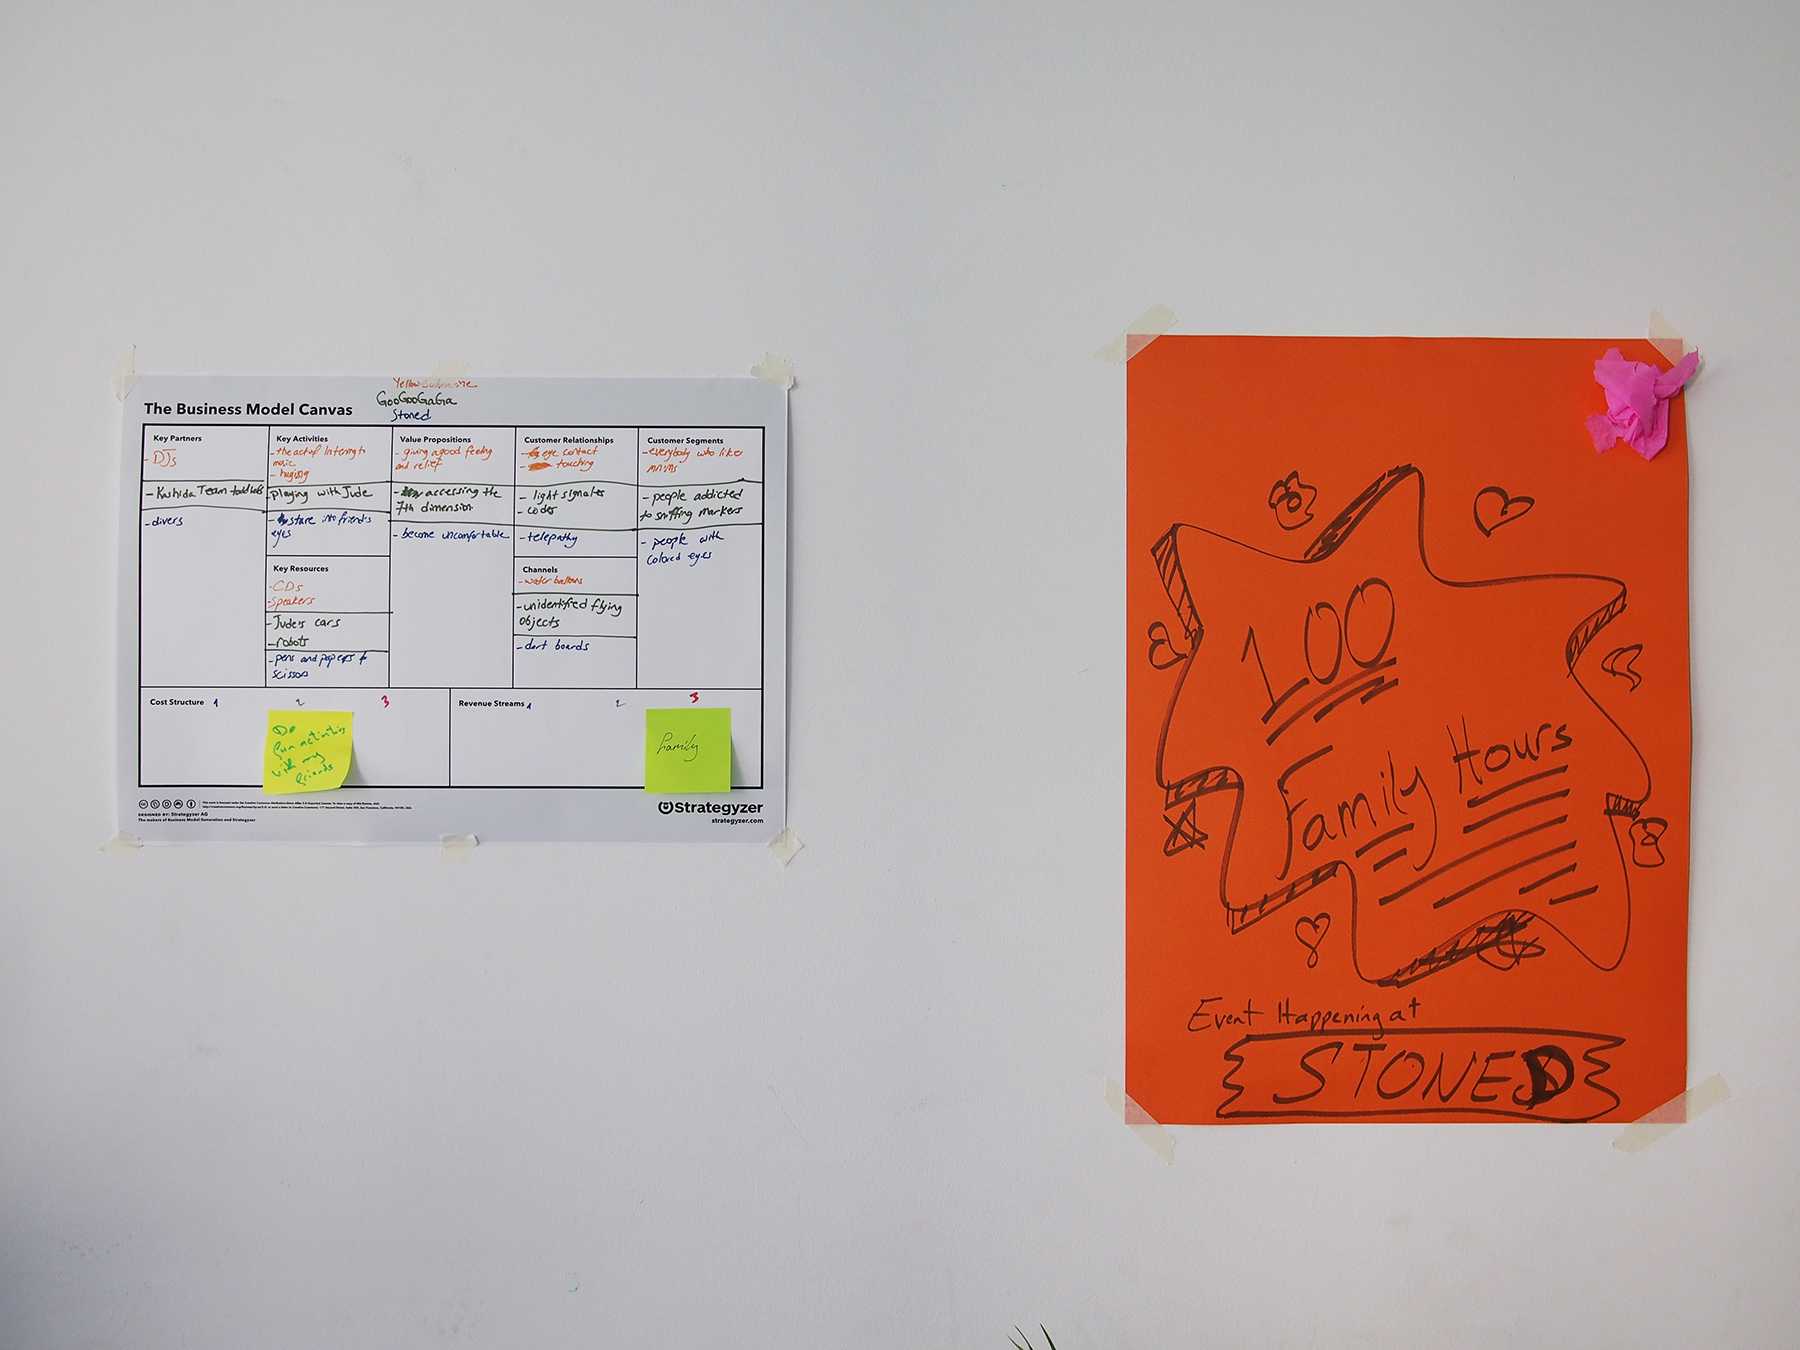 Yellow Submarine
GooGooGaGa
Stoned
The Business Model Canvas
Key Partners
- DJs
- Kashida Team toolkits
- divers
Key Activities
- the act of
music
- hugging
- playing with Jude
- stare into friend's
eyes
Key Resources
- CDs
- Speakers
- Jude's cars
- robots
- pens and
scissors
Value Propositions
- giving a good feeling
and relief
- accessing the
7th dimension
- become uncomfortable
Customer Relationships
- eye contact
- touching
- light signales
- codes
- telepathy
Channels
- water ballons
- unidentified flying
objects
- dart boards
Customer Segments
- everybody who likes
- people addicted
to sniffing markers
- people with
colored eyes
Cost Structure 1 2 3
Do
fun activities
with my
friends
Revenue Streams 1 2 3
family
DESIGNED BY: Strategyzer AG
The makers of Business Model Generation and Strategyzer
Strategyzer
strategyzer.com
100
Family Hours
Event Happening at
STONED